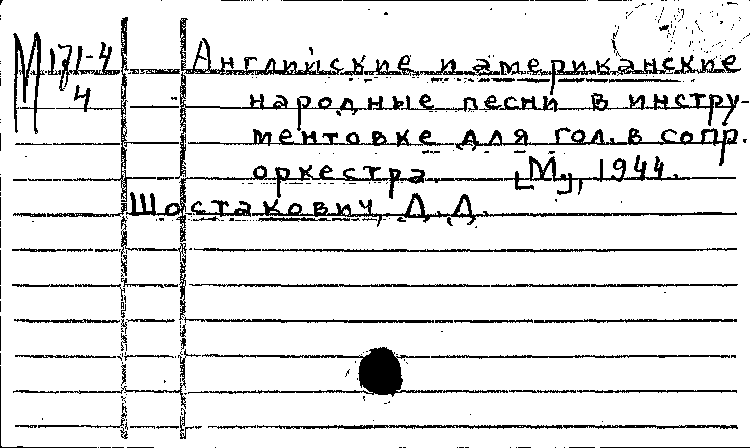 М 171-4
4
Английские и американские
народные песни в инстру-
ментовке для гол. в сопр.
оркестра. [М.], 1944.
Шостакович, Д. Д.